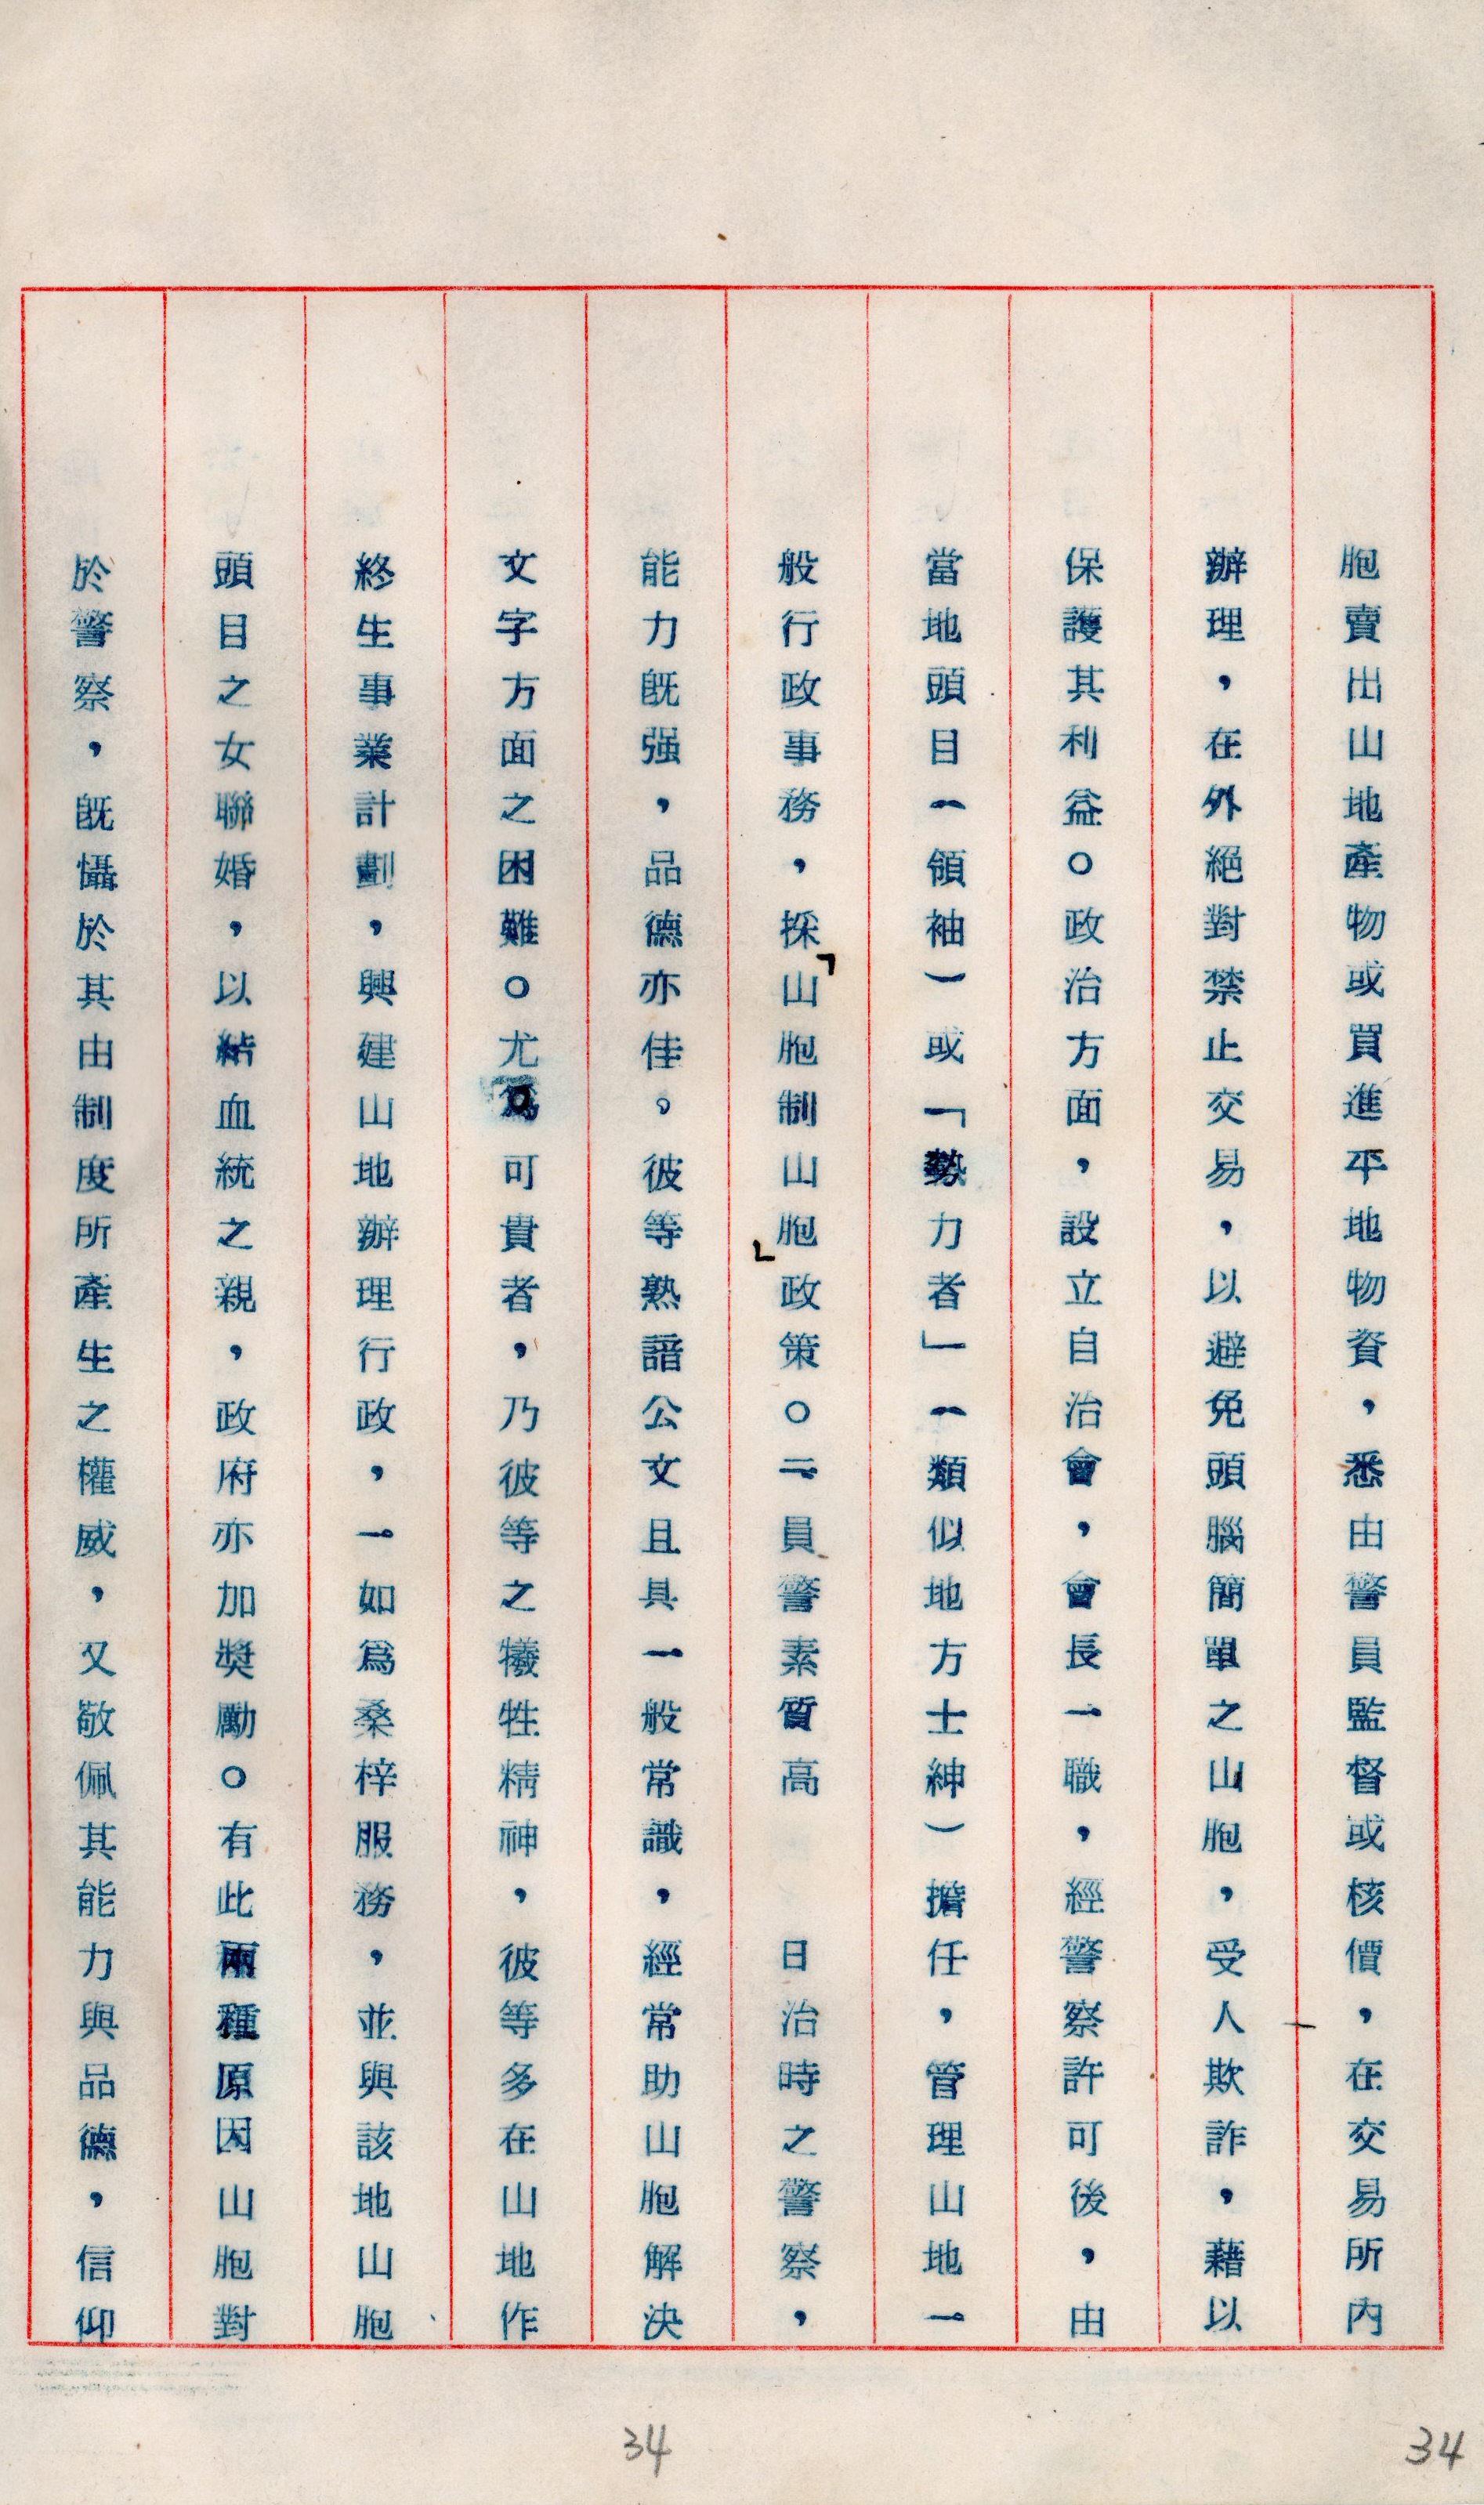 胞賣出山地產物或買進平地物資，悉由警員監督或核價，在交易所內
辦理，在外絕對禁止交易，以避免頭腦簡單之山胞，受人欺詐，藉以
保護其利益。政治方面，設立自治會，會長一職，經警察許可後，由
當地頭目（領袖）或「勢力者」（類似地方士紳）擔任，管理山地一
般行政事務，採「山胞制山胞」政策。二員警素質高　　日治時之警察，
能力既强，品德亦佳。彼等熟諳公文且具一般常識，經常助山胞解決
文字方面之困難。尤爲可貴者，乃彼等之犧牲精神，彼等多在山地作
終生事業計劃，興建山地辦理行政，一如爲桑梓服務，並與該地山胞
頭目之女聯婚，以結血統之親，政府亦加獎勵。有此兩種原因山胞對
於警察，既懾於其由制度所產生之權威，又敬佩其能力與品德，信仰
34
34